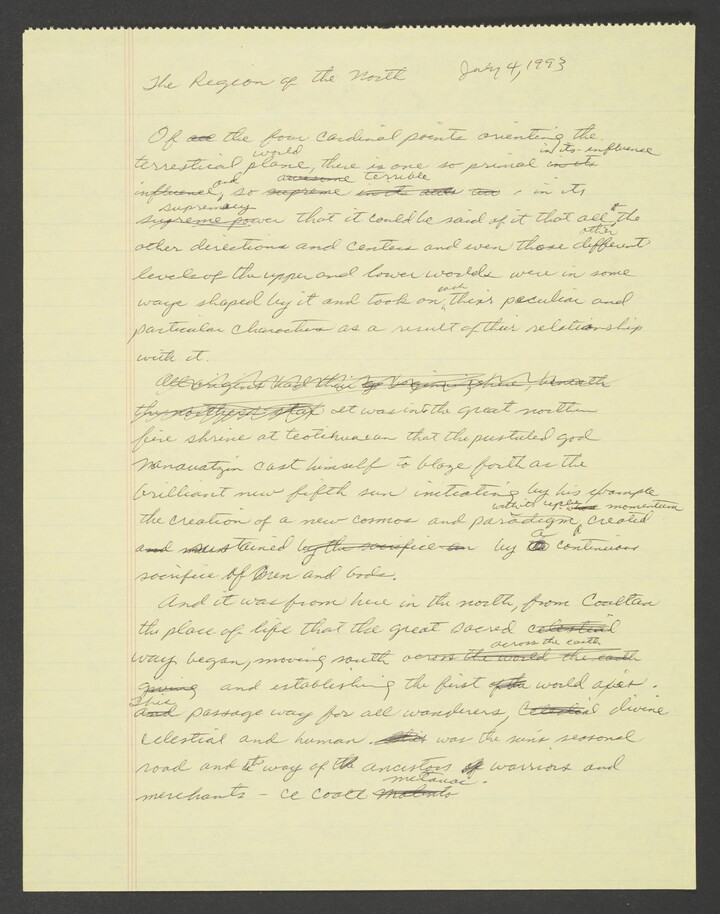 The Region of the North July 4, 1993
Of all the four cardinal points orienting the
world in its influence
terrestrical plane, there is one so primal in its
and awesome terrible
influence, so supreme in its
supremacy
supreme power that it could be said of it that all the
other
other directions and centers and even those different
levels of the upper and lower worlds were in some
each
ways shaped by it and took on their peculiar and
particular character as a result of their relationship
with it.
All origins had their shrine, beneath
the northern star it was in the great northern
fire shrine at teotihuacan that the pustuled god
Nanauatzin cast himself to blaze forth as the
brilliant new fifth sun initiating by his example
with its momentum
the creation of a new cosmos and paradigm, created
a
and sustained by the sacrifice by continuous
sacrifice of men and gods.
And it was from here in the north, from Coaltan
the place of life that the great sacred celestial
across the earth
way began, moving south across the world the earth
giving and establishing the first world axis.
This
and passage way for all wanderers, celestial divine
celestial and human. this was the sun's seasonal
road and the way of the ancestors of warriors and
merchants – ce coatl